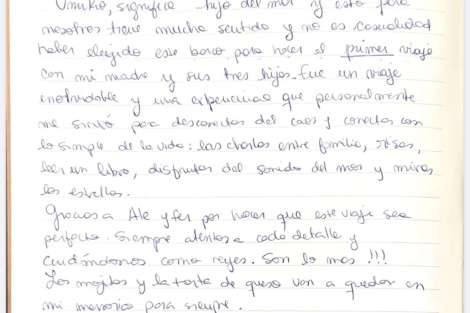 Umiko, significa hijo del mar y esto para
nosotros tiene mucho sentido y no es casualidad
haber elegido este barco para hacer el primer viaje
con mi madre y sus tres hijos. Fue un viaje
inolvidable y una experiencia que personalmente
me sirvió para desconectar del caos y conectar con
lo simple de la vida: las charlas entre familia, risas,
leer un libro, disfrutar del sonido del mar y mirar
las estrellas.
Gracias a Ale y fer por hacer que este viaje sea
perfecto. Siempre atentos a cada detalle y
cuidándonos como reyes. Son lo mas !!!
Los mojitos y la torta de queso van a quedar en
mi memoria para siempre.